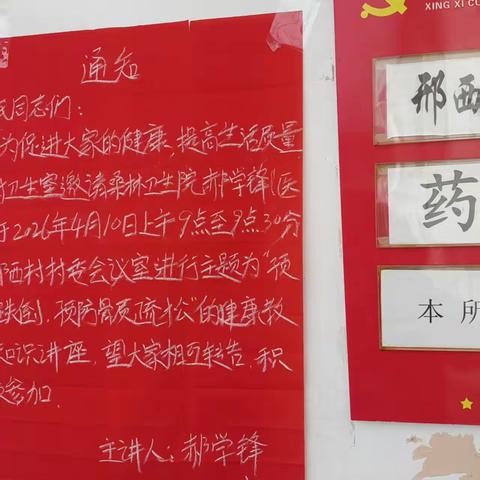 通知
民同志们：
为促进大家的健康，提高生活质量
卫生室邀请桑林卫生院郝学锋(医
于2026年4月10日上午9点至9点30分
西村村委会议室进行主题为“预
跌倒，预防骨质疏松”的健康教
知识讲座，望大家相互转告，积
参加.
主讲人：郝学锋
XING XI CU
邢西
药
本所